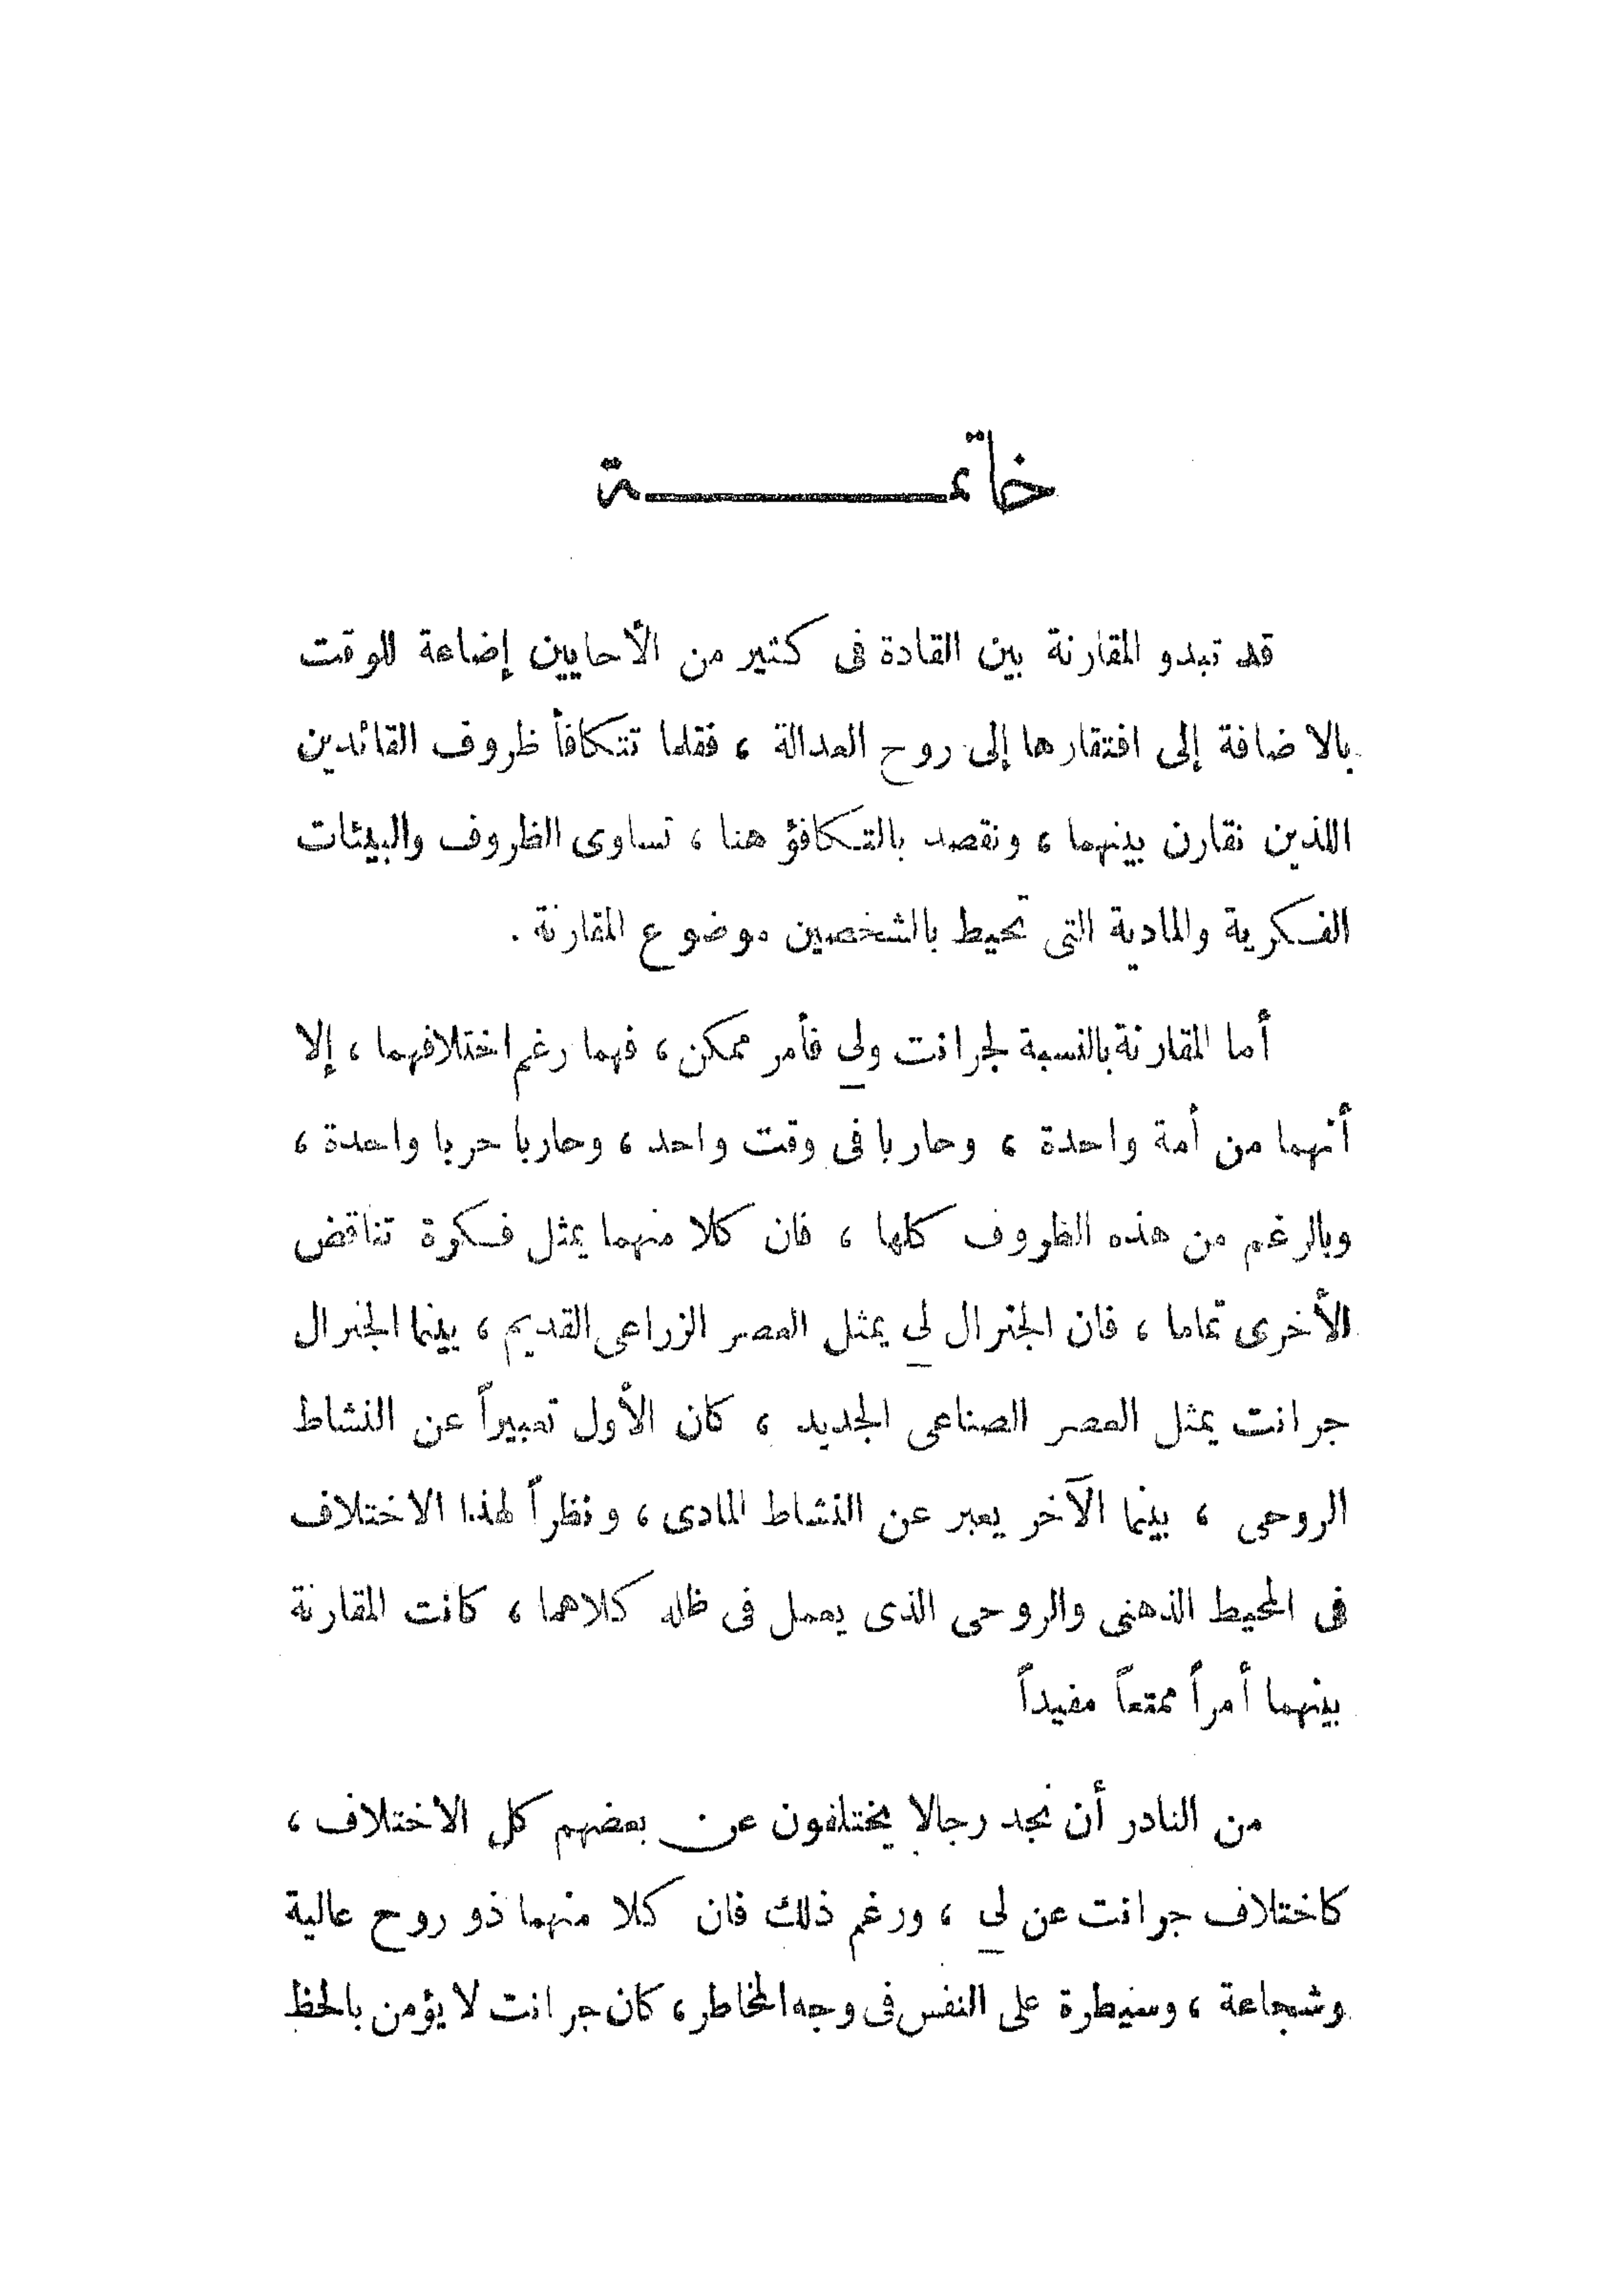 خاتمـــــــــة
قد تبدو المقارنة بين القادة فى كثير من الأحايين إضاعة للوقت
بالاضافة إلى افتقارها إلى روح العدالة ، فقلما تتكافأ ظروف القائدين
اللذين نقارن بينهما ، ونقصد بالتكافؤ هنا ، تساوى الظروف والبيئات
الفكرية والمادية التى تحيط بالشخصين موضوع المقارنة .
أما المقارنة بالنسبة لجرانت ولى فأمر ممكن ، فهما رغم اختلافهما ، إلا
أنهما من أمة واحدة ، وحاربا فى وقت واحد ، وحاربا حربا واحدة ،
وبالرغم من هذه الظروف كلها ، فان كلا منهما يمثل فكرة تناقض
الأخرى تماما ، فان الجنرال لى يمثل العصر الزراعى القديم ، بينما الجنرال
جرانت يمثل العصر الصناعى الجديد ، كان الأول تعبيراً عن النشاط
الروحى ، بينما الآخر يعبر عن النشاط المادى ، ونظراً لهذا الاختلاف
فى المحيط الذهنى والروحى الذى يعمل فى ظله كلاهما ، كانت المقارنة
بينهما أمراً ممتعاً مفيداً
من النادر أن نجد رجالا يختلفون عن بعضهم كل الاختلاف ،
كاختلاف جرانت عن لى ، ورغم ذلك فان كلا منهما ذو روح عالية
وشجاعة ، وسيطرة على النفس فى وجه المخاطر ، كان جرانت لا يؤمن بالحظ